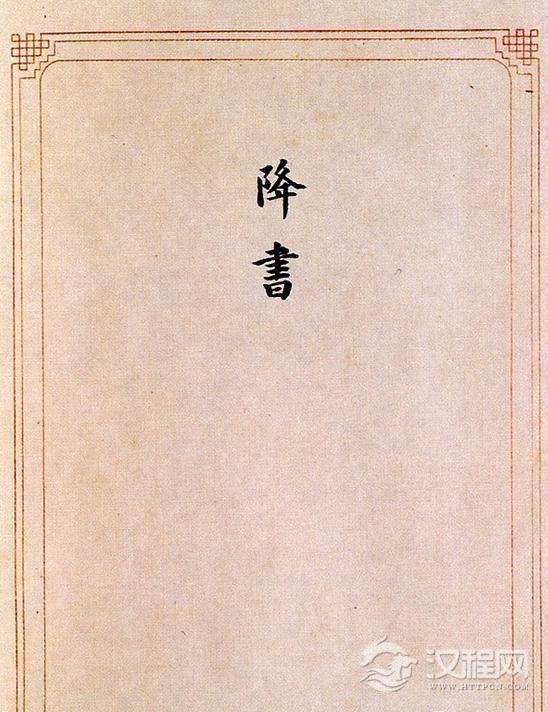 降書
汉程网
WWW.HTTPCN.COM